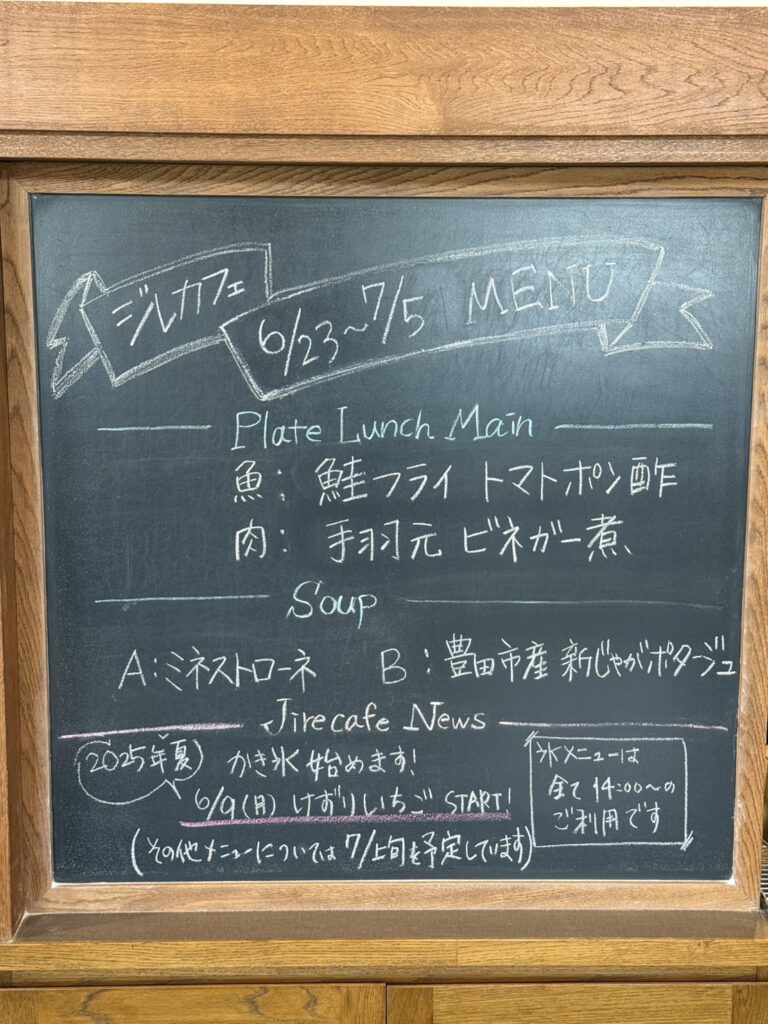 ジルカフェ
6/23〜7/5 MENU
Plate Lunch Main
魚: 鮭フライ トマトポン酢
肉: 手羽元 ビネガー煮
Soup
A:ミネストローネ B:豊田市産 新じゃがポタージュ
Jirecafe News
2025年夏
かき氷 始めます!
6/9(月) けずりいちご START!
(その他メニューについては 7/上旬を予定しています)
氷メニューは
全て 14:00〜の
ご利用です